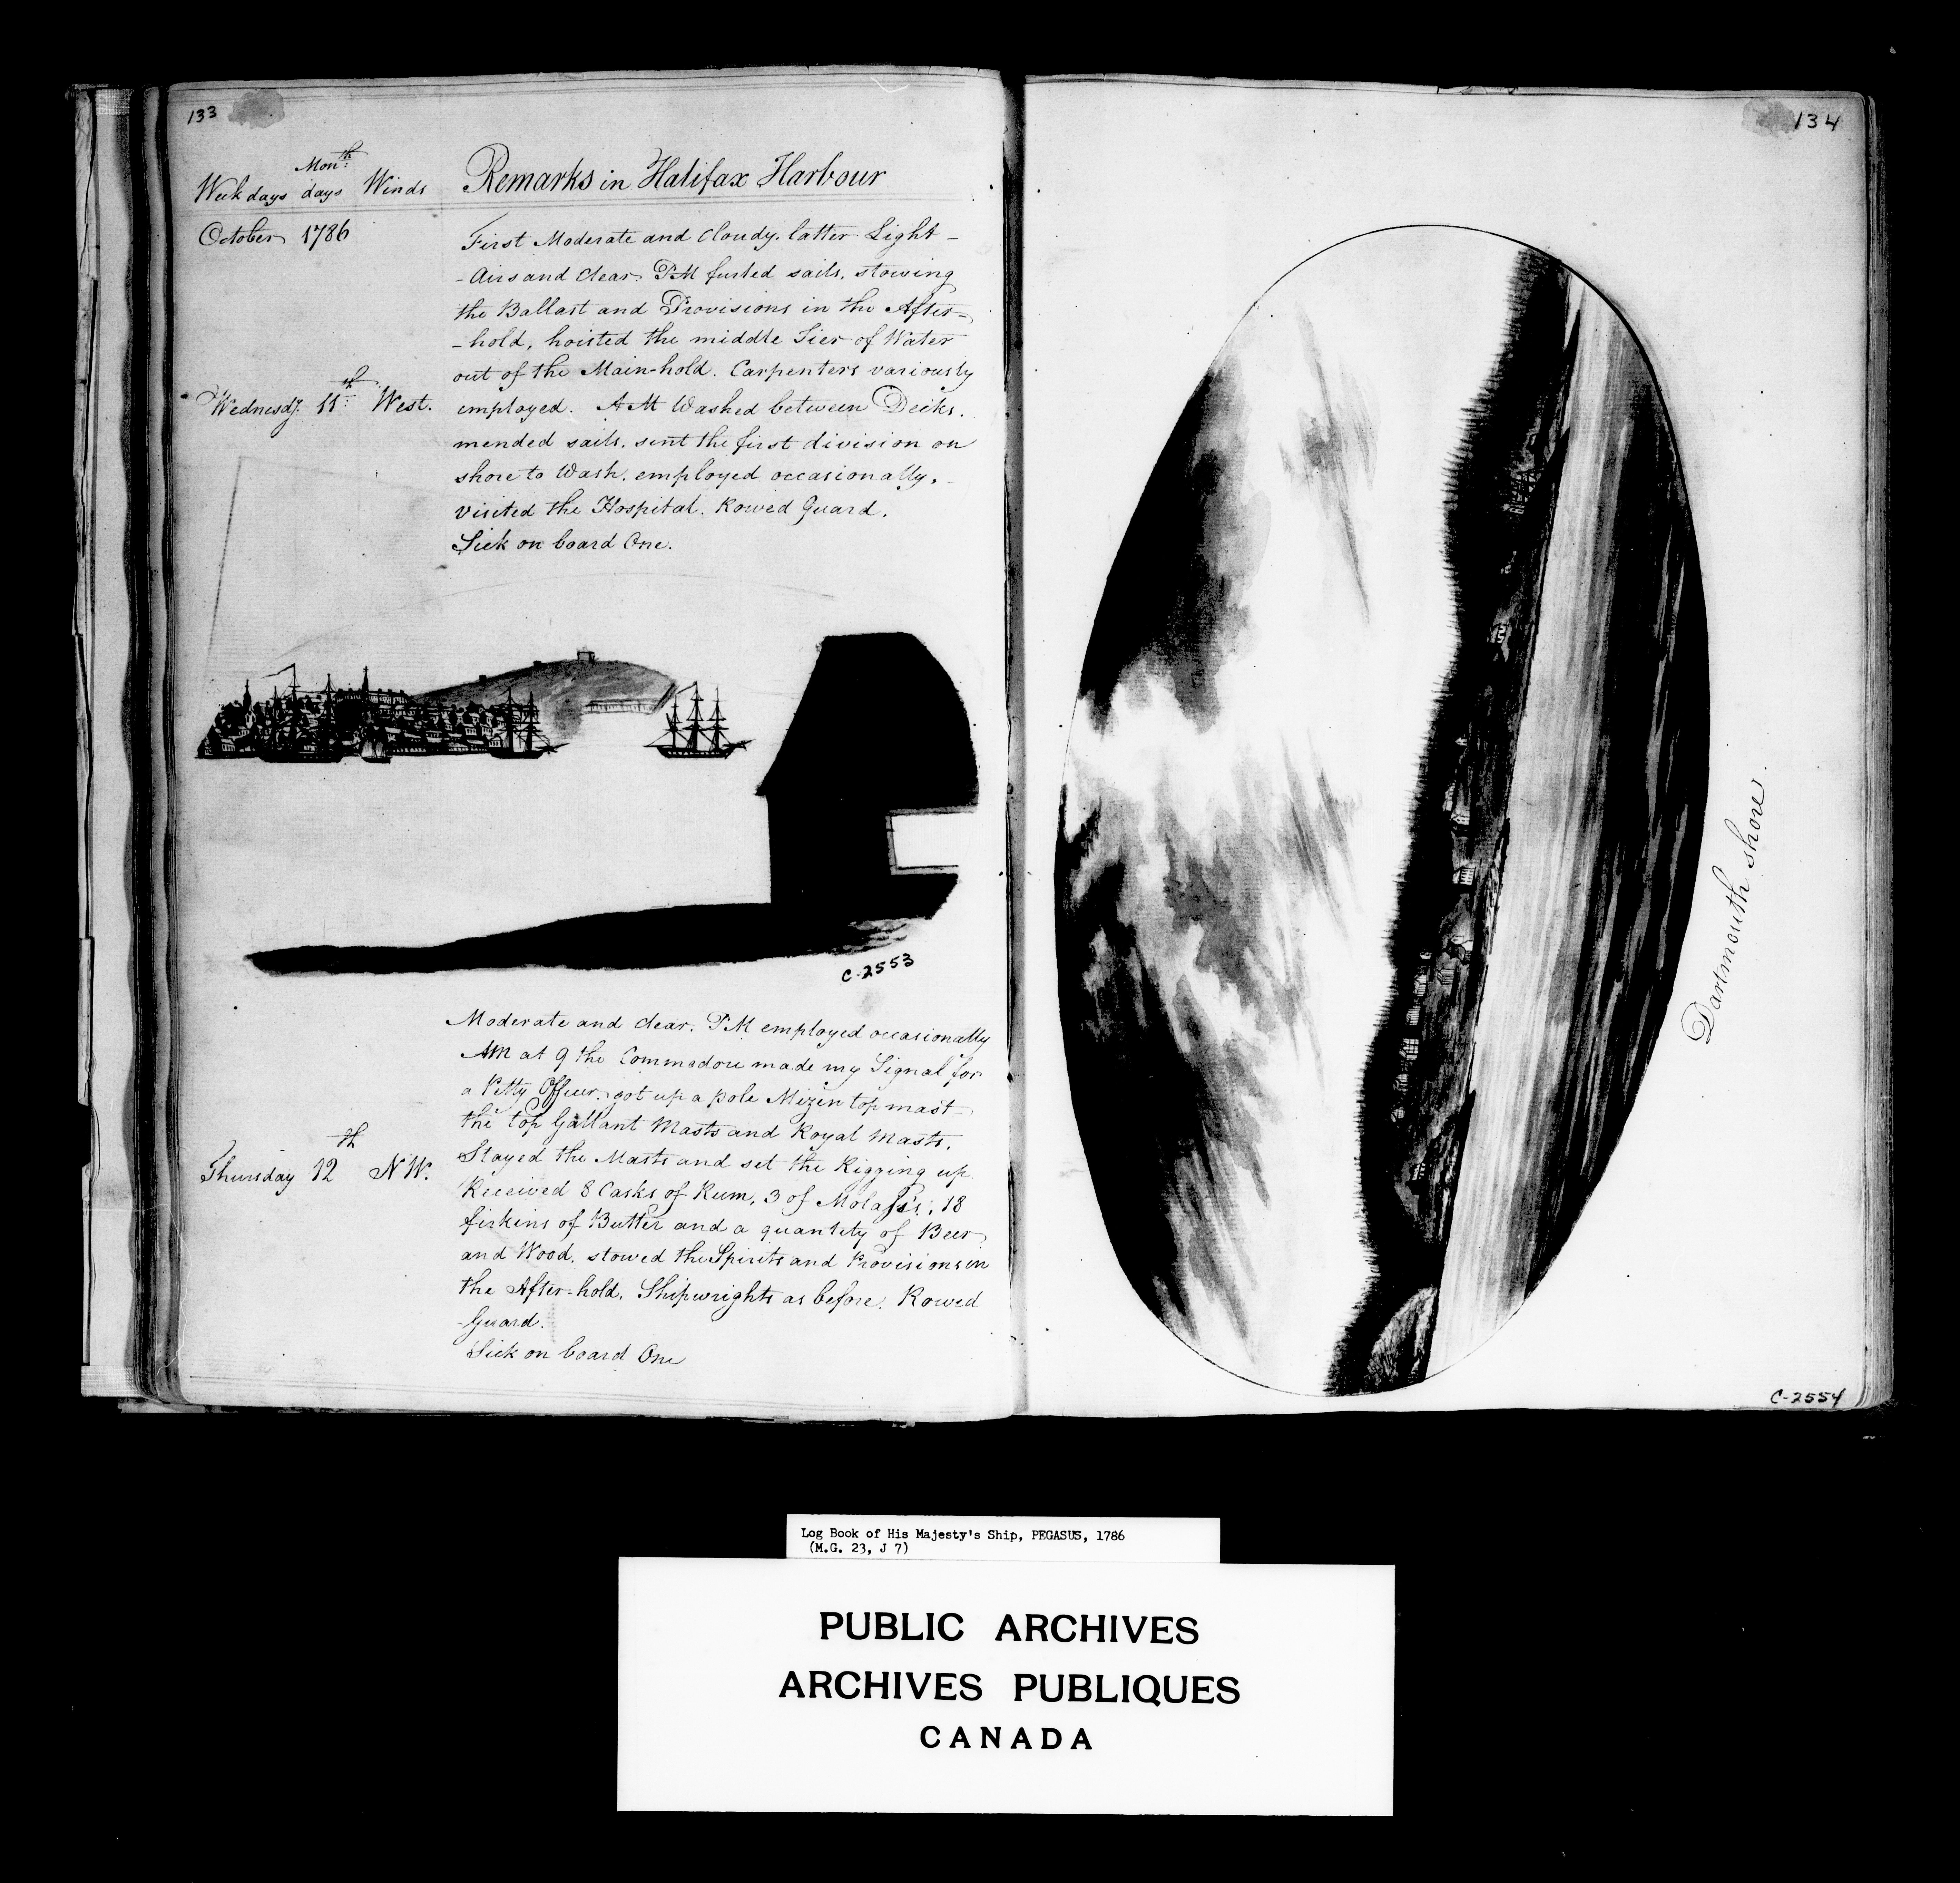 133
Week days Mon.th days Winds Remarks in Halifax Harbour
October 1786
First Moderate and Cloudy, latter Light -
- Airs and clear. PM furled sails, stowing
the Ballast and Provisions in the After-
- hold, hoisted the middle Tier of Water
out of the Main-hold. Carpenters variously
Wednesdy. 11th West. employed. AM Washed between Decks.
mended sails, sent the first division on
shore to Wash, employed occasionally. -
visited the Hospital. Rowed Guard.
Sick on board One.
C-2553
Moderate and clear. PM employed occasionally
AM at 9 the Commodore made my Signal for
a Petty Officer. got up a pole Mizen top mast
the top Gallant Masts and Royal Masts.
Thursday 12th NW. Stayed the Masts and set the Rigging up
Received 8 Casks of Rum, 3 of Molasses, 18
firkins of Butter and a quantity of Beer
and Wood, stowed the Spirits and Provisions in
the After-hold. Shipwrights as before. Rowed
- Guard.
Sick on board One
134
Dartmouth shore.
C-2554
Log Book of His Majesty's Ship, PEGASUS, 1786
(M.G. 23, J 7)
PUBLIC ARCHIVES
ARCHIVES PUBLIQUES
CANADA